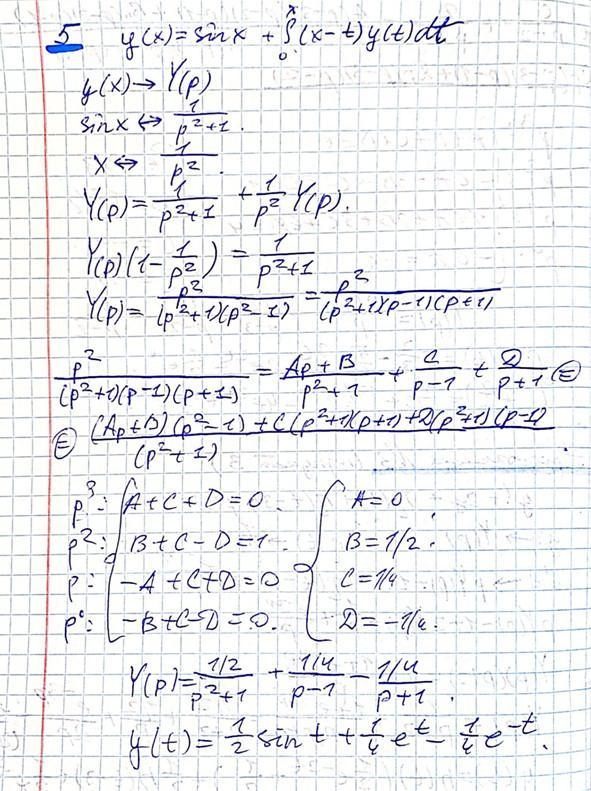 5 y(x) = sin x + ∫₀ˣ (x-t) y(t) dt
y(x) → Y(p)
sin x ⇔ 1/(p²+1).
x ⇔ 1/p².
Y(p) = 1/(p²+1) + 1/p² Y(p).
Y(p)(1 - 1/p²) = 1/(p²+1)
Y(p) = p²/((p²+1)(p²-1)) = p²/((p²+1)(p-1)(p+1))
p²/((p²+1)(p-1)(p+1)) = (Ap+B)/(p²+1) + C/(p-1) + D/(p+1) ⊜
⊜ ((Ap+B)(p²-1) + C(p²+1)(p+1) + D(p²+1)(p-1))/(p²+1)
p³: { A+C+D=0. { A=0
p²: B+C-D=1. B=1/2.
p: -A+C+D=0 C=1/4
p⁰: -B+C-D=0. D=-1/4.
Y(p) = (1/2)/(p²+1) + (1/4)/(p-1) - (1/4)/(p+1).
y(t) = 1/2 sin t + 1/4 eᵗ - 1/4 e⁻ᵗ.